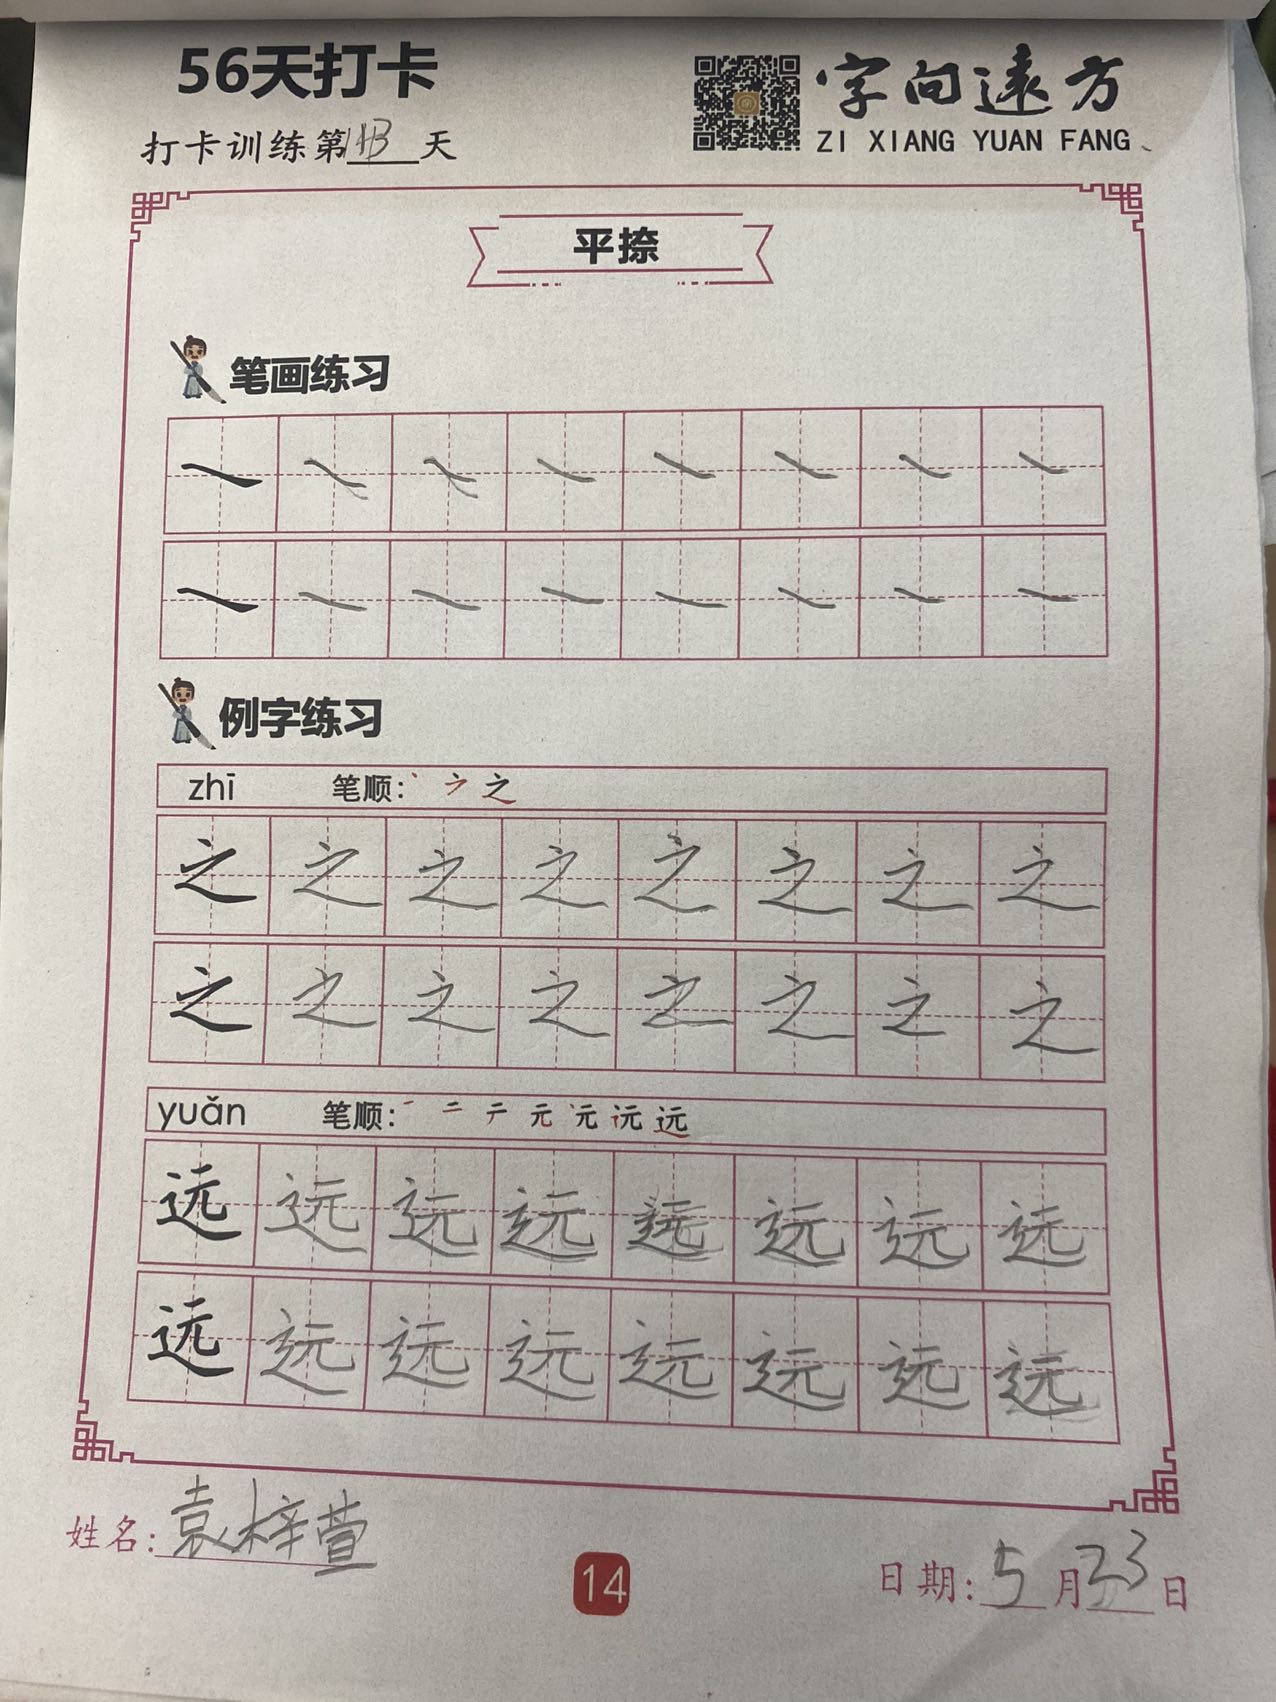 56天打卡
字向遠方
ZI XIANG YUAN FANG
打卡训练第13天
平捺
笔画练习
例字练习
zhī 笔顺: 丶 之
之 之 之 之 之 之 之 之
之 之 之 之 之 之 之 之
yuǎn 笔顺: 一 二 テ 元 远
远 远 远 远 远 远 远 远
远 远 远 远 远 远 远 远
姓名: 袁梓萱
14
日期: 5月23日